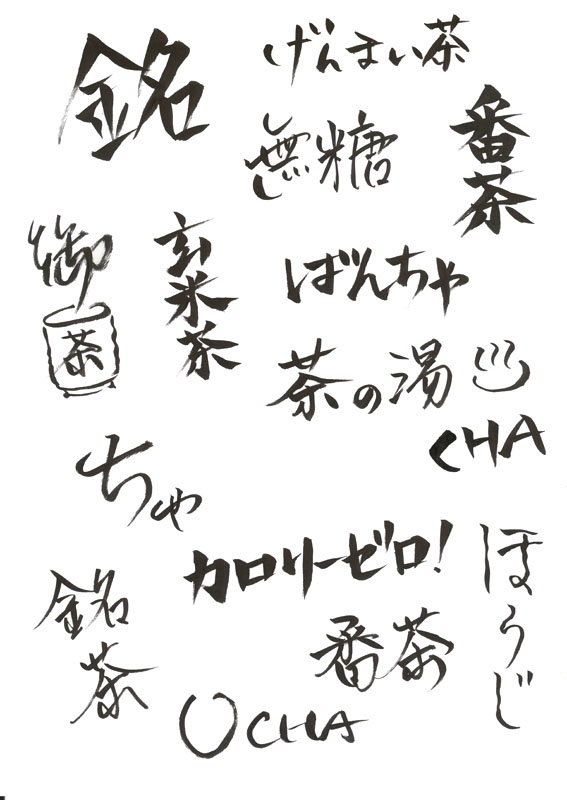 銘
げんまい茶
無糖
番茶
御
茶
玄米茶
ばんちゃ
茶の湯
CHA
ちゃ
カロリーゼロ!
ほうじ
銘茶
番茶
OCHA